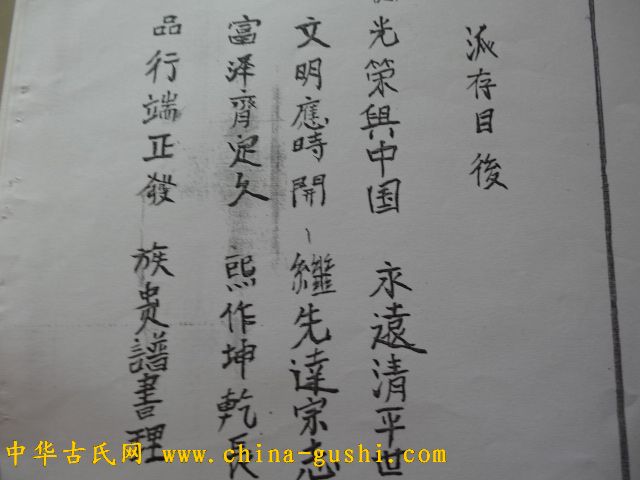 派存目後
光荣與中国 永遠清平世
文明應時開 繼先達宗志
富泽齊定久 熙作坤乾長
品行端正發 族贵譜書理
中华古氏网 www.china-gushi.com